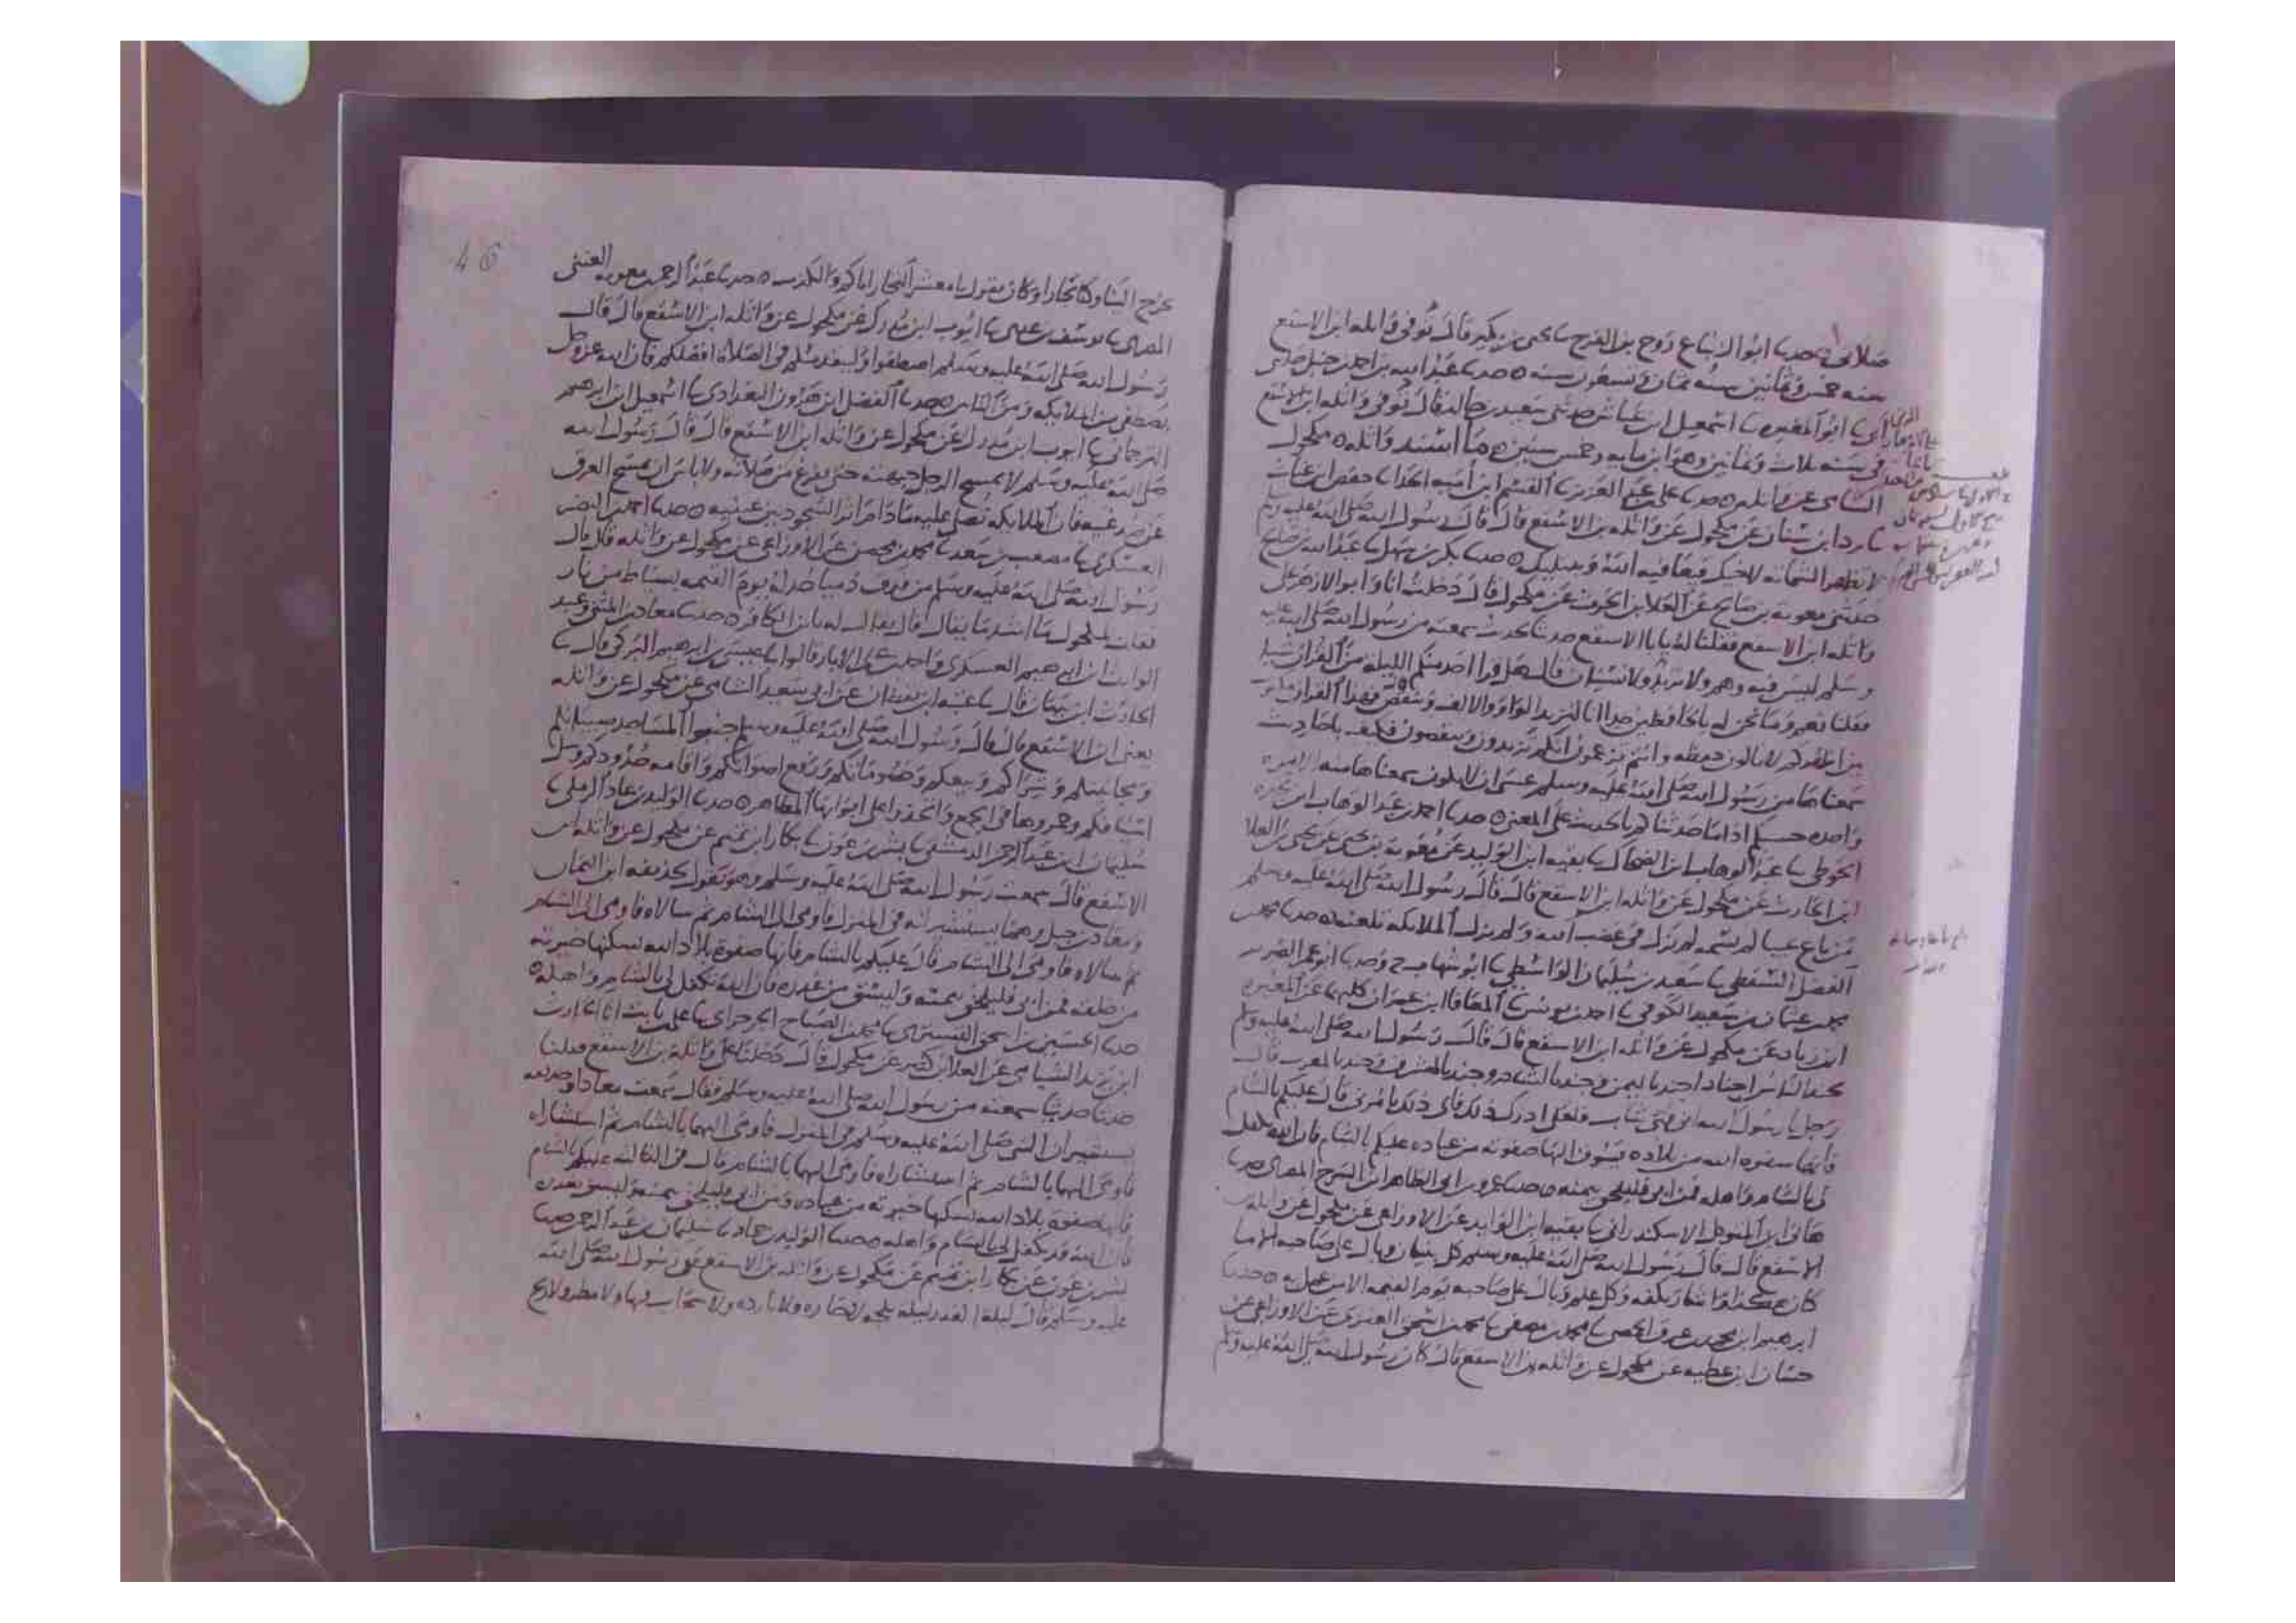 صلاتي ه حدثنا ابو الزنباع روح بن الفرج نا يحيى بن بكير قال توفي واثله ابن الاسقع
سنه خمس وثمانين سنه ثمان وتسعون سنه ه حدثنا عبد الله بن احمد بن حنبل حدثني
ابي نا ابو المغيره نا اسمعيل ابن عياش حدثني سعيد بن خالد قال توفي واثله ابن الاسقع
في سنه ثلاث وثمانين وهو ابن مايه وخمس سنين ه ما اسند واثله ه مكحول
الشامي عن واثله ه حدثنا علي بن عبد العزيز نا القسم ابن اميه الحذا نا حفص ابن غياث
نا برد ابن سنان عن مكحول عن واثله بن الاسقع قال قال رسول الله صلى الله عليه وسلم
لا تظهر الشماته لاخيك فيعافيه الله ويبتليك ه حدثنا بكر بن سهل نا عبد الله بن صالح
حدثني معويه بن صالح عن العلا بن الحرث عن مكحول قال دخلت انا وابو الازهر على
واثله ابن الاسقع فقلنا له يابا الاسقع حدثنا بحديث سمعته من رسول الله صلى الله عليه
وسلم ليس فيه وهم ولا تزيد ولا نسيان قال هل قرا احد منكم الليله من القران شيا
فقلنا نعم وما نحن له بالحافظين جدا انا لنزيد الواو والالف وننقص فهذا القران
بين اظهركم لا تالون حفظه وانتم تزعمون انكم تزيدون وتنقصون فكيف باحاديث
سمعناها من رسول الله صلى الله عليه وسلم عسى ان لا يكون سمعناها منه الا مره
واحده حسبكم اذا ما حدثناكم بالحديث على المعنى ه حدثنا احمد بن عبد الوهاب ابن نجده
الحوطي نا عبد الوهاب ابن الضحاك نا بقيه ابن الوليد عن معويه بن يحيى عن العلا
ابن الحارث عن مكحول عن واثله ابن الاسقع قال قال رسول الله صلى الله عليه وسلم
من باع عيبا لم يسمه لم يزل في غضب الله ولم تزل الملايكه تلعنه ه حدثنا محمد بن
الفضل السقطي نا سعيد بن سليمان الواسطي نا ابو شهاب ح وحدثنا ابو عمر الضرير
محمد بن عثمان بن سعيد الكوفي نا احمد بن يونس نا المعافا ابن عمران كلهما عن المغيره
ابن زياد عن مكحول عن واثله ابن الاسقع قال قال رسول الله صلى الله عليه وسلم
يجند الناس اجنادا جند باليمن وجند بالشام وجند بالمشرق وجند بالمغرب فقال
رجل يا رسول الله اني فتى شاب فلعلي ادرك ذلك فاي ذلك تامرني قال عليكم بالشام
فانها صفوه الله من بلاده يسوق اليها صفوته من عباده عليكم بالشام فان الله تكفل
لي بالشام واهله فمن ابى فليلحق بيمنه ه حدثنا عمرو بن ابي الطاهر ابن السرح المصري حدثنا
هاني ابن المتوكل الاسكندراني نا بقيه ابن الوليد عن الاوزاعي عن مكحول عن واثله بن
الاسقع قال قال رسول الله صلى الله عليه وسلم كل بنيان وبال على صاحبه الا ما
كان هكذا واشار بكفه وكل علم وبال على صاحبه يوم القيمه الا من عمل به ه حدثنا
ابرهيم ابن محمد بن عرق الحمصي نا محمد بن مصفى نا محمد بن اسحق العنزي عن الاوزاعي عن
حسان ابن عطيه عن مكحول عن واثله بن الاسقع قال كان رسول الله صلى الله عليه وسلم
46
يخرج الينا وكنا تجارا وكان يقول يا معشر التجار اياكم والكذب ه حدثنا عبد الرحمن بن معويه العتبي
المصري نا يوسف بن عدي نا ايوب ابن مدرك عن مكحول عن واثله ابن الاسقع قال قال
رسول الله صلى الله عليه وسلم اصطفوا وليتقدمكم في الصلاة افضلكم فان الله عز وجل
يصطفي من الملايكه ومن الناس ه حدثنا الفضل ابن هرون البغدادي نا اسمعيل ابن ابرهيم
الترجماني نا ايوب ابن مدرك عن مكحول عن واثله ابن الاسقع قال قال رسول الله
صلى الله عليه وسلم لا يمسح الرجل جبهته حتى يفرغ من صلاته ولا باس ان يمسح العرق
عن صدغيه فان الملايكه تصلي عليه ما دام اثر السجود بين عينيه ه حدثنا احمد بن النضر
العسكري نا مصعب بن سعيد نا محمد بن محصن عن الاوزاعي عن مكحول عن واثله قال قال
رسول الله صلى الله عليه وسلم من قذف ذميا حد له يوم القيمه بسياط من نار
فقلت لمكحول ما اشد ما يقال قال يقال له يا ابن الكافر ه حدثنا معاذ بن المثنى وعبيد
الوارث ابن ابرهيم العسكري واحمد بن علي الابار قالوا نا عيسى بن ابرهيم البركي قال نا
الحارث ابن نبهان قال نا عتبه ابن يقظان عن ابي سعيد الشامي عن مكحول عن واثله
يعني ابن الاسقع قال قال رسول الله صلى الله عليه وسلم جنبوا المساجد صبيانكم
ومجانينكم وشراكم وبيعكم وخصوماتكم ورفع اصواتكم واقامه حدودكم وسل
اسيافكم وجمروها في الجمع واتخذوا على ابوابها المطاهر ه حدثنا الوليد بن حماد الرملي نا
سليمان ابن عبد الرحمن الدمشقي نا بشر بن عون نا بكار ابن تميم عن مكحول عن واثله بن
الاسقع قال سمعت رسول الله صلى الله عليه وسلم وهو يقول لحذيفه ابن اليمان
ومعاذ بن جبل وهما يستشيرانه في المنزل فاومى الى الشام ثم سالاه فاومى الى الشام
ثم سالاه فاومى الى الشام قال عليكم بالشام فانها صفوة بلاد الله يسكنها خيرته
من خلقه فمن ابى فليلحق بيمنه وليسق من غدره فان الله تكفل لي بالشام واهله ه
حدثنا الحسين بن اسحق التستري نا محمد بن الصباح الجرجراي نا علي بن ثابت انا الحارث
ابن يزيد الشامي عن العلا ابن كثير عن مكحول قال دخلنا على واثلة بن الاسقع فقلنا
حدثنا حديثا سمعته من رسول الله صلى الله عليه وسلم فقال سمعت معاذا وحذيفه
يستشيران النبي صلى الله عليه وسلم في المنزل فاومى اليهما بالشام ثم استشاراه
فاومى اليهما بالشام ثم استشاراه فاومى اليهما بالشام قال في الثالثه عليكم بالشام
فانها صفوة بلاد الله يسكنها خيرته من عباده ومن ابى فليلحق بيمنه وليسق بغدره
فان الله قد تكفل لي بالشام واهله ه حدثنا الوليد بن حماد نا سليمان بن عبد الرحمن حدثنا
بشر بن عون عن بكار ابن تميم عن مكحول عن واثله بن الاسقع عن رسول الله صلى الله
عليه وسلم قال ليلة القدر ليله بلجه لا حاره ولا بارده ولا سحاب فيها ولا مطر ولا ريح